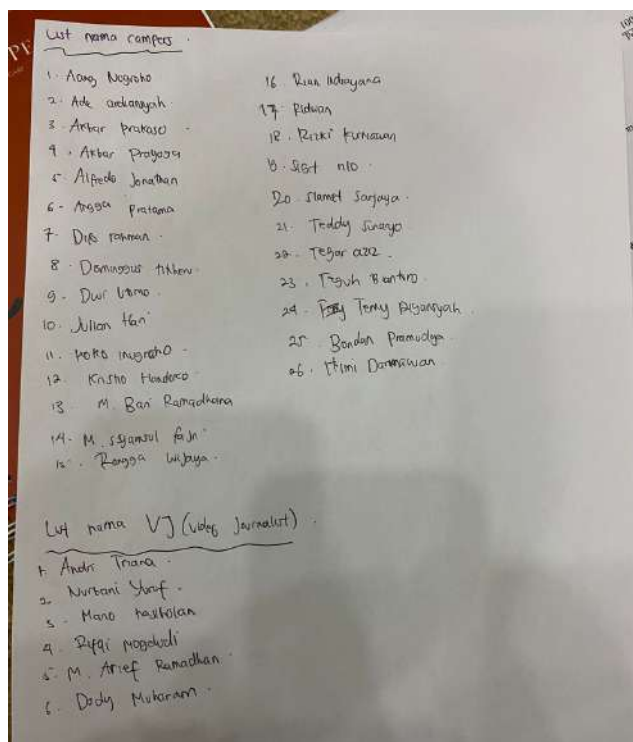 List nama campers.
1. Aang Nugroho
2. Ade ardiansyah
3. Akbar prakaso
4. Akbar Prayoga
5. Alfredo Jonathan
6. Angga Pratama
7. rahman.
8. Dominggus
9. Dwi Utomo
10. Julian Hari
11. Koko inugroho
12. Krisho Handoco
13. M. Bari Ramadhana
14. M. syamsul fajri
15. Rangga Wijaya.
16. Rian Indrayana
17. Ridwan
18. Rizki Kurniawan
19. Sigit nlo.
20. Slamet Sarjaya.
21. Teddy Sunaryo
22. Tegar aziz.
23. Teguh
24. Temy
25. Bondan Pramudya
26. Darmawan
List nama VJ (video Journalist).
1. Andri Triana.
2. Nurbani Yusuf.
3. Mano hasibolan
4. Rifqi
5. M. Arief Ramadhan.
6. Dody Muharam.